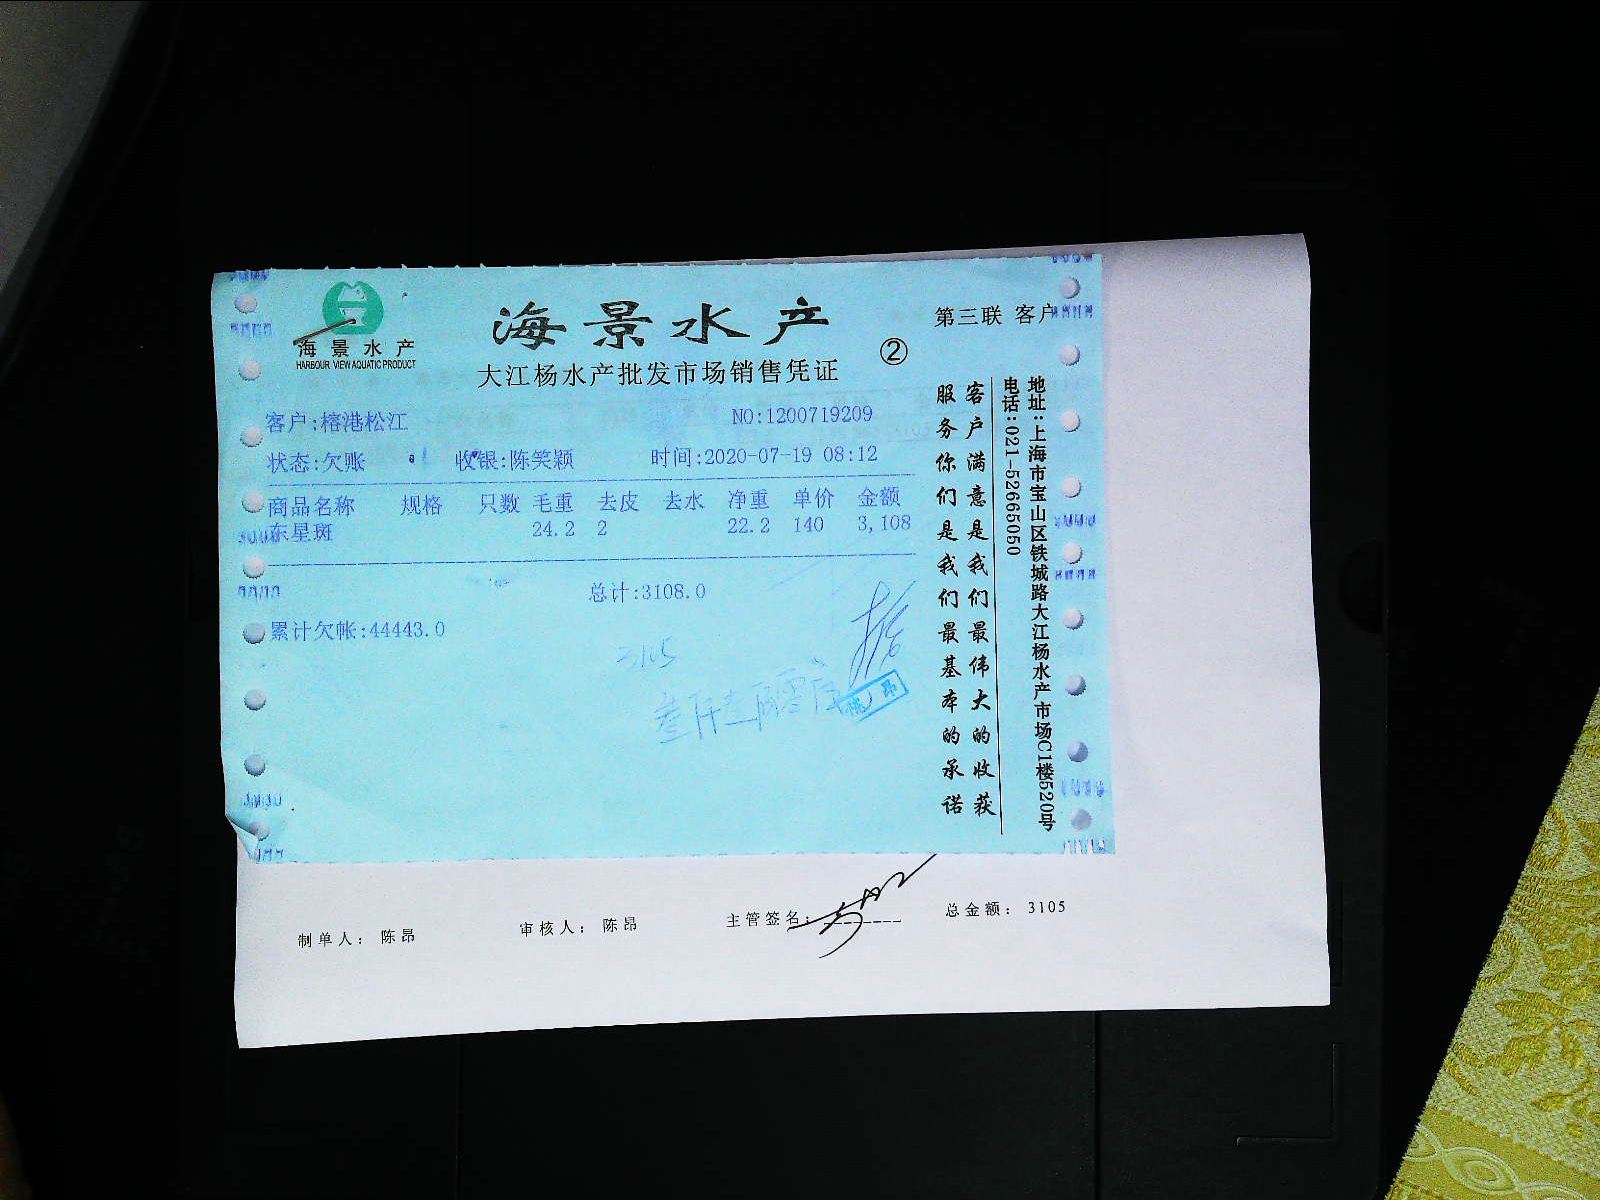 海景水产
HARBOUR VIEW AQUATIC PRODUCT
海景水产
大江杨水产批发市场销售凭证
②
第三联 客户
客户:榕港松江
NO:1200719209
状态:欠账 收银:陈笑颖 时间:2020-07-19 08:12
商品名称 规格 只数 毛重 去皮 去水 净重 单价 金额
东星斑 24.2 2 22.2 140 3,108
总计:3108.0
累计欠帐:44443.0
3105
叁仟壹佰零伍
客户满意是我们最伟大的收获
服务你们是我们最基本的承诺
地址:上海市宝山区铁城路大江杨水产市场C1楼520号
电话:021-52665050
制单人: 陈昂 审核人: 陈昂 主管签名: 总金额: 3105